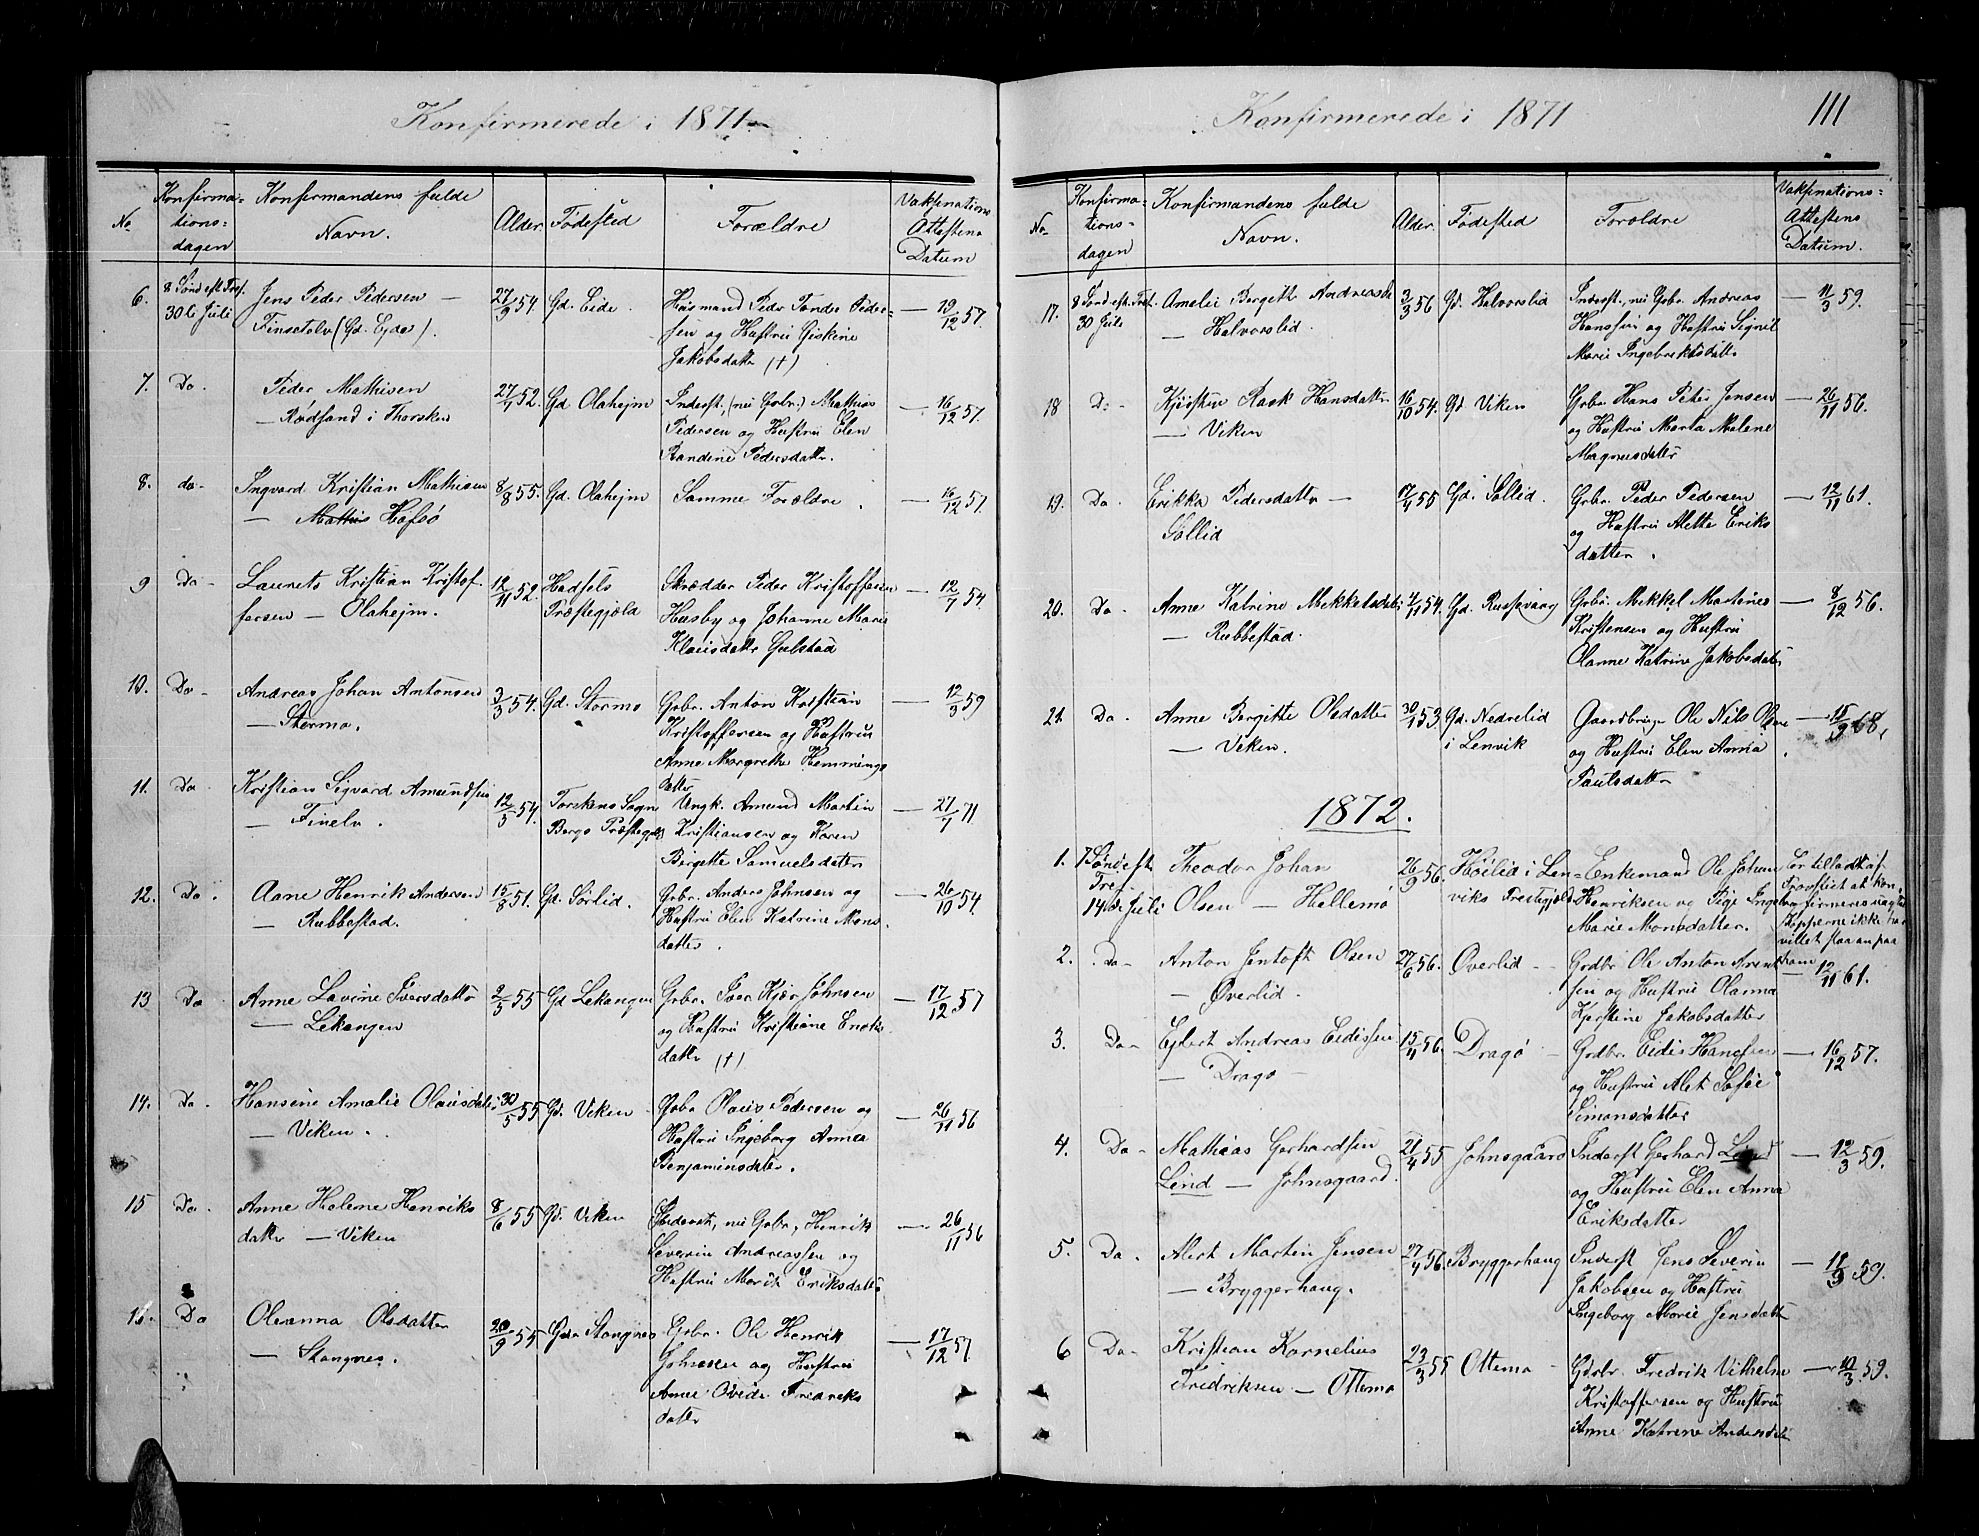 Konfirmerede i 1871
No
Konfirma-
tions-
dagen
Konfirmandens fulde
Navn.
Alder
Födested
Forældre
Vakzinations
Attestens
Datum
6.
8 Sönd eft Tref.
30 Juli
Jens Peder Pedersen —
Finsetelv (Gd. Ejde).
27/9 54.
Gd. Eide.
Husmand Peder Tonder Peder-
sen og Hustru Giskine
Jakobsdattr (†)
— 19/12 57.
7.
Do.
Peder Mathisen
— Rödsand i Thorsken
27/1 52.
Gd Olahejm
Inderst, (nu Grbr.) Mathias
Pedersen og Hustru Elen
Randine Pedersdattr.
— 16/12 57.
8.
do-
Ingvard Kristian Mathisen
— Mathis Hofsö
8/8 55.
Gd. Olahejm
Samme Forældre
— 16/12 57.
9
Do-
Laurets Kristian Kristof-
fersen — Olahejm.
12/11 52.
Hadsels
Præstegjeld
Skrædder Peder Kristoffersen
Husby og Johanne Marie
Klausdattr Gulstad
— 12/7 54.
10.
Do-
Andreas Johan Antonsen
— Stormo.
3/3 54.
Gd. Stormo
Grbr. Anton Kristian
Kristoffersen og Hustru
Anne Margrethe Hemmings
datter
— 12/3 59
11.
Do
Kristian Sigvard Amundsen
— Finelv.
12/5 54.
Torskens Sogn
Bergs Præstegjeld
Ungk. Amund Martin
Kristiansen og Karen
Birgitte Samuelsdatter
— 27/7 71
12.
Do.
Aane Henrik Andersen
— Rubbestad.
15/8 51.
Gd. Sörlid.
Grbr. Anders Johnsen og
Hustru Elen Katrine Mons
datter.
— 26/10 54.
13
Do
Anne Lavine Iversdattr
— Lekangen
2/5 55
Gd Lekangen
Grbr. Iver Kjær Johnsen
og Hustru Kristiane Enoks
dattr (†)
— 17/12 57
14.
Do.
Hansine Amalie Olausdatter
— Viken.
30/5 55
Gd. Viken
Grbr Olaus Pedersen og
Hustru Ingeborg Anna
Benjaminsdatter.
— 26/11 56
15
Do.
Anne Helene Henriks
datter — Viken
8/6 55
Gd. Viken
Inderst, nu Grbr, Henrik
Severin Andreassen og
Hustru Marit Eriksdattr
— 26/11 56
16.
Do
Oleanna Olsdatter
— Stangnes.
20/9 55
Gd. Stangnes
Grbr. Ole Henrik
Johnsen og Hustru
Anne Ovidie Fredriks
dattr
— 17/12 57.
Konfirmerede i 1871
111
No
Konfirma-
tions-
dagen
Konfirmandens fulde
Navn.
Alder
Födested
Forældre
Vakzinations-
Attestens
Datum.
17.
8 Sönd eft. Tref.
30 Juli
Amelie Bergith Andreasdr
— Halvorslid
3/3 56
Gd. Halvorslid
Inderst, nu Grbr. Andreas
Hanssen og Hustru Signil
Marie Ingebriktsdattr
— 11/3 59.
18
Do-
Kjerstin Rask Hansdatter
— Viken
16/10 54.
Gd. Viken
Grbr. Hans Peter Jensen
og Hustru Marta Malene
Magnusdatter
— 26/11 56.
19.
Do-
Erikka Pedersdattr —
Sollid
17/4 55
Gd. Sollid.
Grbr. Peder Pedersen
og Hustru Aletta Eriks
datter.
— 12/11 61.
20.
Do-
Anne Katrine Mekkelsdatter
— Rubbestad.
4/11 54.
Gd. Russevaag
Grbr. Mekkel Martines
Kristensen og Hustru
Olanne Katrine Jakobsdatter
— 8/12 56.
21.
Do.
Anne Bergitte Olsdatter
— Viken.
30/1 53.
Gd. Nedrelid
i Lenvik
Gaardbruger Ole Nils Olsen
og Hustru Elen Anna
Paulsdattr
— 15/9 68.
1872.
1.
7 Sönd eft
Tre
14de Juli
Theodor Johan
Olsen — Hellemo
26/9 56
Höilid i Len-
viks Prestegjeld
Enkemand Ole Johan
Henriksen og Pige Ingeb.
Marie Monsdatter.
Er tilladt af
Provstiet at kon-
firmeres
Kopperne ikke har
villet slaa an paa
ham
2.
Do-
Anton Jentoft Olsen
— Överlid.
27/6 56.
Överlid —
Grdbr Ole Anton Arent
sen og Hustru Olanna
Kjerstine Jakobsdatter
— 12/11 61.
3.
Do-
Ejlert Andreas Eidissen
— Dragö —
15/4 56.
Dragö —
Grdbr. Eidis Hanssen
og Hustru Alet Sofie
Simonsdatter
— 16/12 57.
4.
Do-
Mathias Gerhardsen
Lind — Johnsgaard.
21/4 55
Johnsgaard
Inderst Gerhard Lind
og Hustru Elen Anna
Eriksdatter
— 12/3 59.
5.
Do-
Alert Martin Jensen
— Bryggerhaug.
27/4 56
Bryggerhaug
Inderst Jens Severin
Jakobsen og Hustru
Ingeborg Marie Jensdattr
— 11/9 59.
6
Do-
Kristian Kornelius
Fredriksen — Ottemo
23/3 55
Ottemo —
Gdrbr. Fredrik Vilhelm
Kristoffersen og Hustru
Anne Katrine Andersdatr
— 12/3 59.